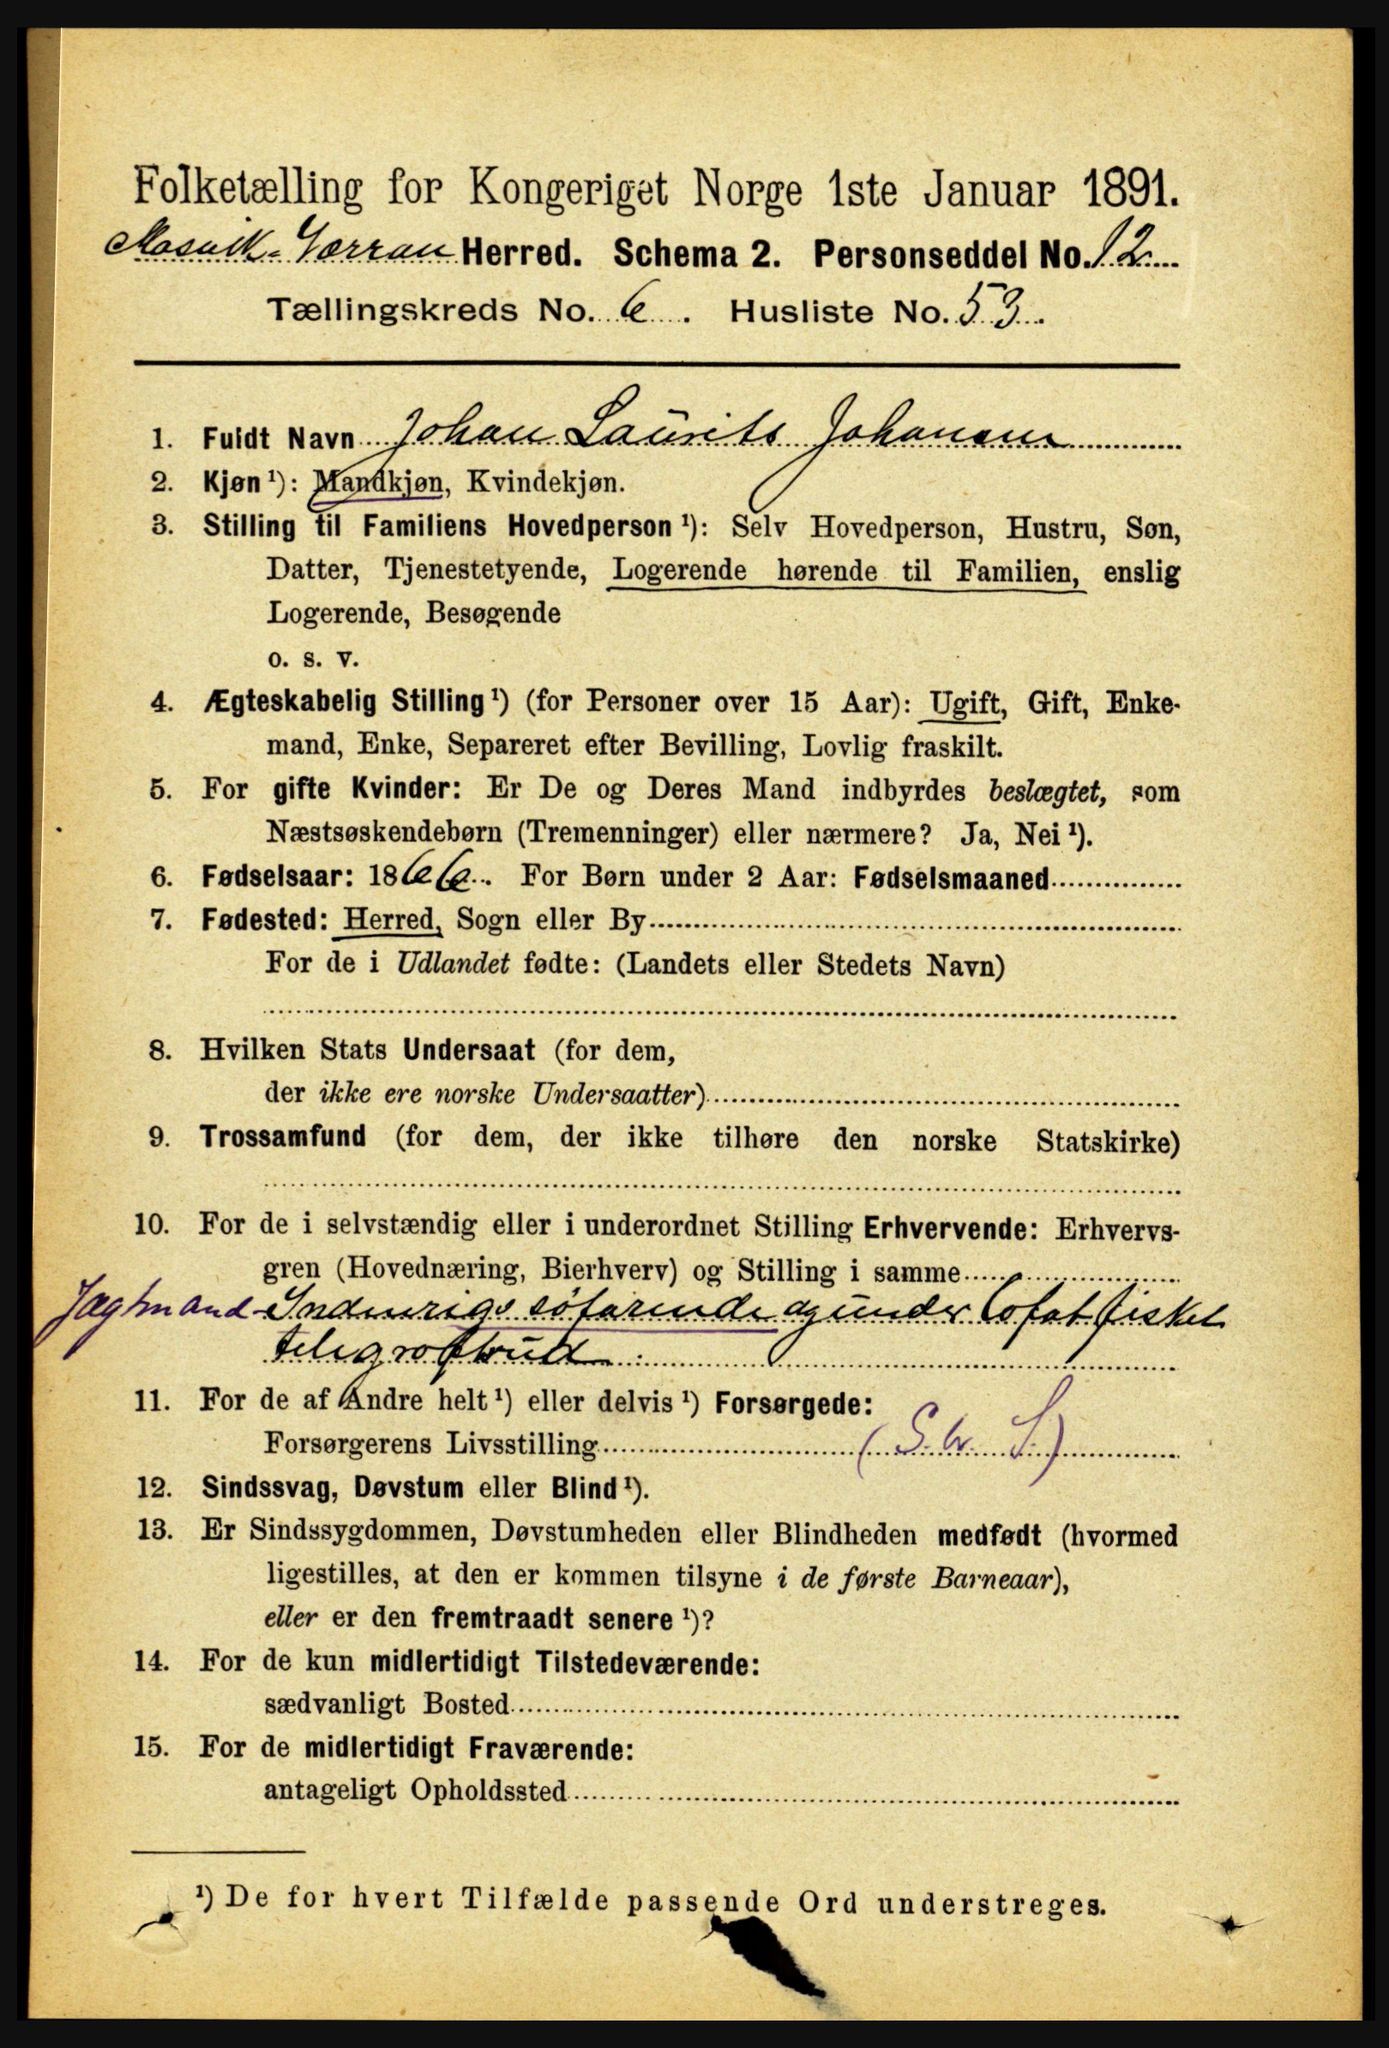 Folketælling for Kongeriget Norge 1ste Januar 1891.
Mosvik-Værran Herred. Schema 2. Personseddel No. 12
Tællingskreds No. 6. Husliste No. 53.
1. Fuldt Navn Johan Laurits Johansen
2. Kjøn ¹): Mandkjøn, Kvindekjøn.
3. Stilling til Familiens Hovedperson ¹): Selv Hovedperson, Hustru, Søn,
Datter, Tjenestetyende, Logerende hørende til Familien, enslig
Logerende, Besøgende
o. s. v.
4. Ægteskabelig Stilling ¹) (for Personer over 15 Aar): Ugift, Gift, Enke-
mand, Enke, Separeret efter Bevilling, Lovlig fraskilt.
5. For gifte Kvinder: Er De og Deres Mand indbyrdes beslægtet, som
Næstsøskendebørn (Tremenninger) eller nærmere? Ja, Nei ¹).
6. Fødselsaar: 1866. For Børn under 2 Aar: Fødselsmaaned
7. Fødested: Herred, Sogn eller By
For de i Udlandet fødte: (Landets eller Stedets Navn)
8. Hvilken Stats Undersaat (for dem,
der ikke ere norske Undersaatter)
9. Trossamfund (for dem, der ikke tilhøre den norske Statskirke)
10. For de i selvstændig eller i underordnet Stilling Erhvervende: Erhvervs-
gren (Hovednæring, Bierhverv) og Stilling i samme
Jagtmand Indenrigs søfarende og under Lofotfisket
telegrafbud
11. For de af Andre helt ¹) eller delvis ¹) Forsørgede:
Forsørgerens Livsstilling (S. w. S.)
12. Sindssvag, Døvstum eller Blind ¹).
13. Er Sindssygdommen, Døvstumheden eller Blindheden medfødt (hvormed
ligestilles, at den er kommen tilsyne i de første Barneaar),
eller er den fremtraadt senere ¹)?
14. For de kun midlertidigt Tilstedeværende:
sædvanligt Bosted
15. For de midlertidigt Fraværende:
antageligt Opholdssted
¹) De for hvert Tilfælde passende Ord understreges.